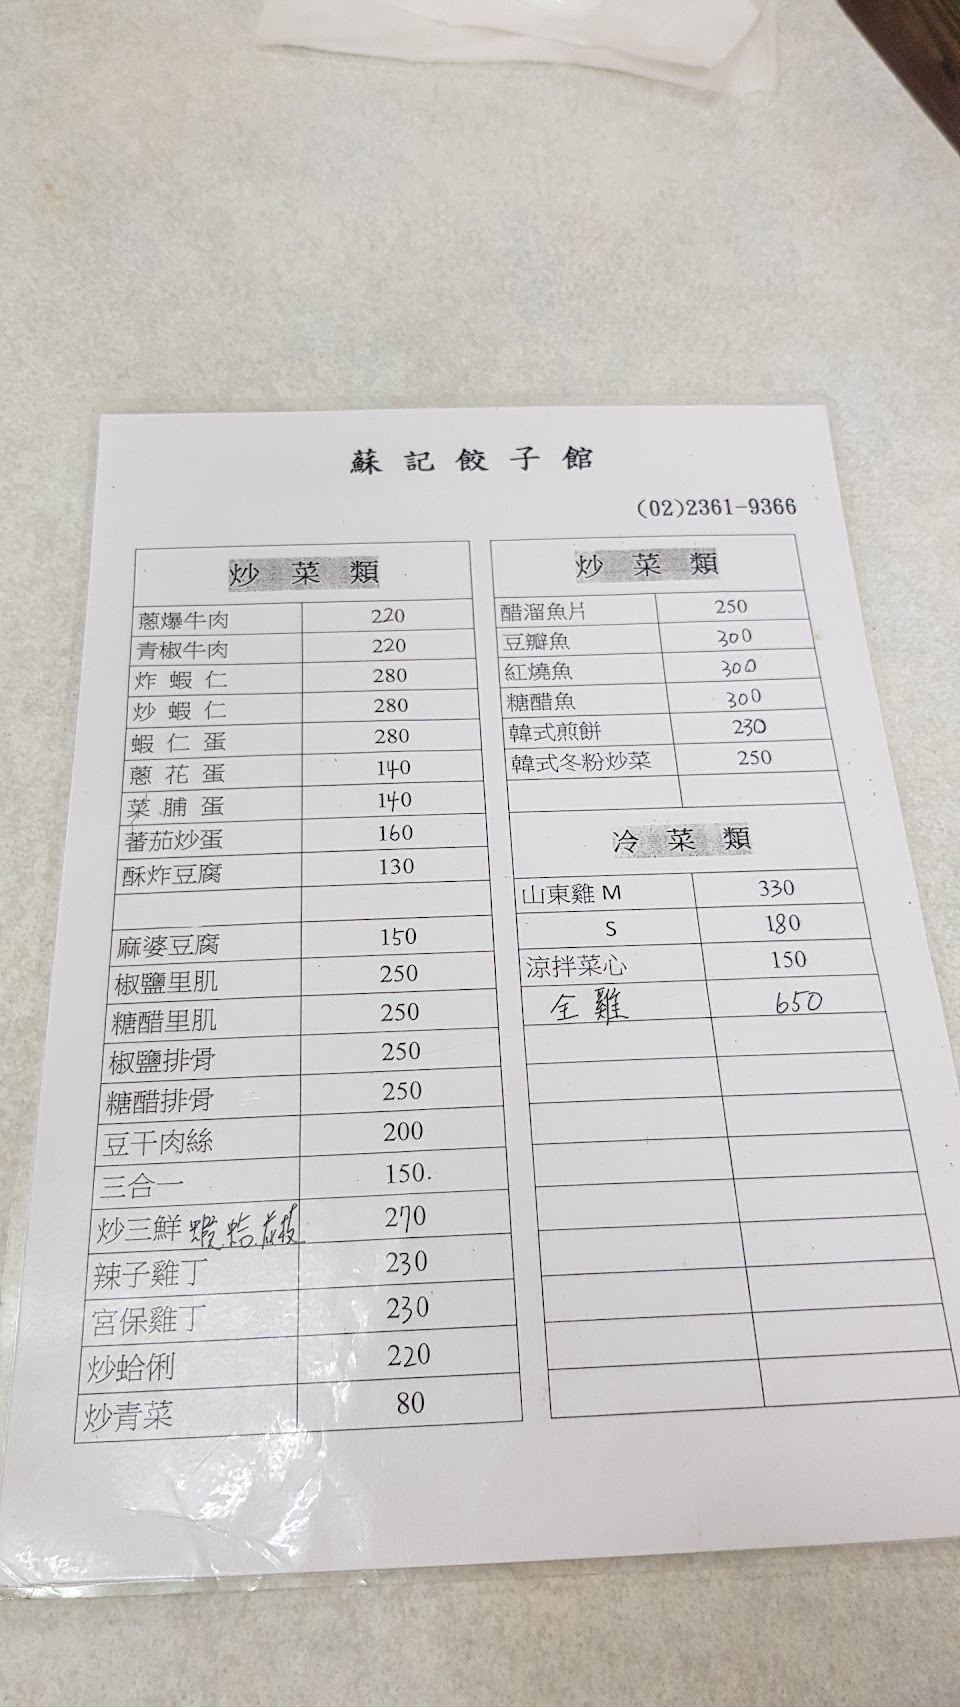 蘇記餃子館
(02)2361-9366
炒菜類
蔥爆牛肉 220
青椒牛肉 220
炸蝦仁 280
炒蝦仁 280
蝦仁蛋 280
蔥花蛋 140
菜脯蛋 140
蕃茄炒蛋 160
酥炸豆腐 130
麻婆豆腐 150
椒鹽里肌 250
糖醋里肌 250
椒鹽排骨 250
糖醋排骨 250
豆干肉絲 200
三合一 150.
炒三鮮 蝦.蛤.花枝 270
辣子雞丁 230
宮保雞丁 230
炒蛤俐 220
炒青菜 80
炒菜類
醋溜魚片 250
豆瓣魚 300
紅燒魚 300
糖醋魚 300
韓式煎餅 230
韓式冬粉炒菜 250
冷菜類
山東雞M 330
S 180
涼拌菜心 150
全雞 650